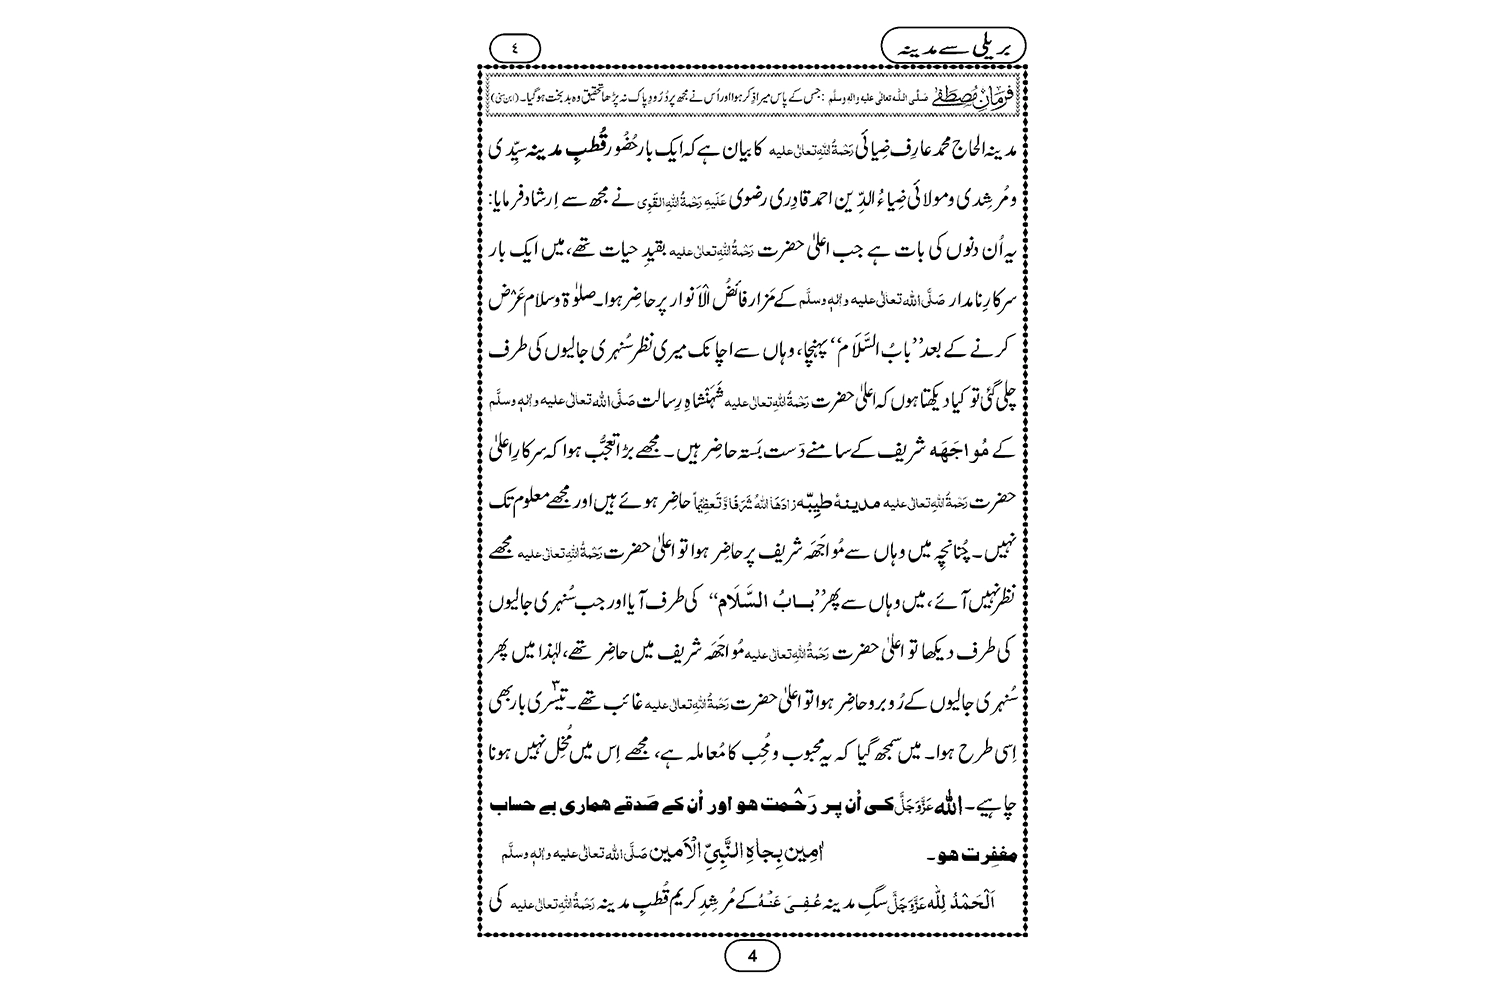 بریلی سے مدینہ
٤
فرمانِ مُصطَفٰے صَلَّی اللہ تعالٰی علیہ واٰلہٖ وسلَّم : جس کے پاس میرا ذِکر ہوا اور اُس نے مجھ پر دُرُودِ پاک نہ پڑھا تحقیق وہ بد بخت ہوگیا۔ (ابن سنی)
مدینہ الحاج محمد عارِف ضِیائی رَحْمَۃُ اللہِ تعالٰی علیہ کا بیان ہے کہ ایک بار حُضُور قُطبِ مدینہ سیِّدی
و مُرشِدی و مولائی ضِیاءُ الدِّین احمد قادِری رضوی عَلَیہِ رَحْمَۃُ اللہِ القَوِی نے مجھ سے اِرشاد فرمایا:
یہ اُن دنوں کی بات ہے جب اعلیٰ حضرت رَحْمَۃُ اللہِ تعالٰی علیہ بقیدِ حیات تھے، میں ایک بار
سرکارِ نامدار صَلَّی اللہ تعالٰی علیہ واٰلہٖ وسلَّم کے مَزار فائضُ الْاَنوار پر حاضِر ہوا۔ صلوٰۃ وسلام عَرْض
کرنے کے بعد ’’بابُ السَّلَام‘‘ پہنچا، وہاں سے اچانک میری نظر سُنہری جالیوں کی طرف
چلی گئی تو کیا دیکھتا ہوں کہ اعلیٰ حضرت رَحْمَۃُ اللہِ تعالٰی علیہ شَہَنْشاہِ رِسالت صَلَّی اللہ تعالٰی علیہ واٰلہٖ وسلَّم
کے مُواجَھَہ شریف کے سامنے دَست بَستہ حاضِر ہیں۔ مجھے بڑا تعجُّب ہوا کہ سرکارِ اعلیٰ
حضرت رَحْمَۃُ اللہِ تعالٰی علیہ مدینۂ طیِبّہ زادَھَا اللہُ شَرَفًا وَّتَعظِیْمًا حاضِر ہوئے ہیں اور مجھے معلوم تک
نہیں۔ چُنانچِہ میں وہاں سے مُواجَھَہ شریف پر حاضِر ہوا تو اعلیٰ حضرت رَحْمَۃُ اللہِ تعالٰی علیہ مجھے
نظر نہیں آئے، میں وہاں سے پھر ’’بابُ السَّلَام‘‘ کی طرف آیا اور جب سُنہری جالیوں
کی طرف دیکھا تو اعلیٰ حضرت رَحْمَۃُ اللہِ تعالٰی علیہ مُواجَھَہ شریف میں حاضِر تھے، لہٰذا میں پھر
سُنہری جالیوں کے رُوبرو حاضِر ہوا تو اعلیٰ حضرت رَحْمَۃُ اللہِ تعالٰی علیہ غائب تھے۔ تیسری۳ بار بھی
اِسی طرح ہوا۔ میں سمجھ گیا کہ یہ محبوب و مُحِب کا مُعاملہ ہے، مجھے اِس میں مُخِل نہیں ہونا
چاہیے۔ اللہ عَزَّوَجَلَّ کی اُن پر رَحْمت ہو اور اُن کے صَدقے ہماری بے حساب
مغفِرت ہو۔ اٰمِین بِجاہِ النَّبِیِّ الْاَمین صَلَّی اللہ تعالٰی علیہ واٰلہٖ وسلَّم
اَلْحَمْدُ لِلّٰہ عَزَّوَجَلَّ سگِ مدینہ عُفِیَ عَنْہُ کے مُرشِدِ کریم قُطبِ مدینہ رَحْمَۃُ اللہِ تعالٰی علیہ کی
4